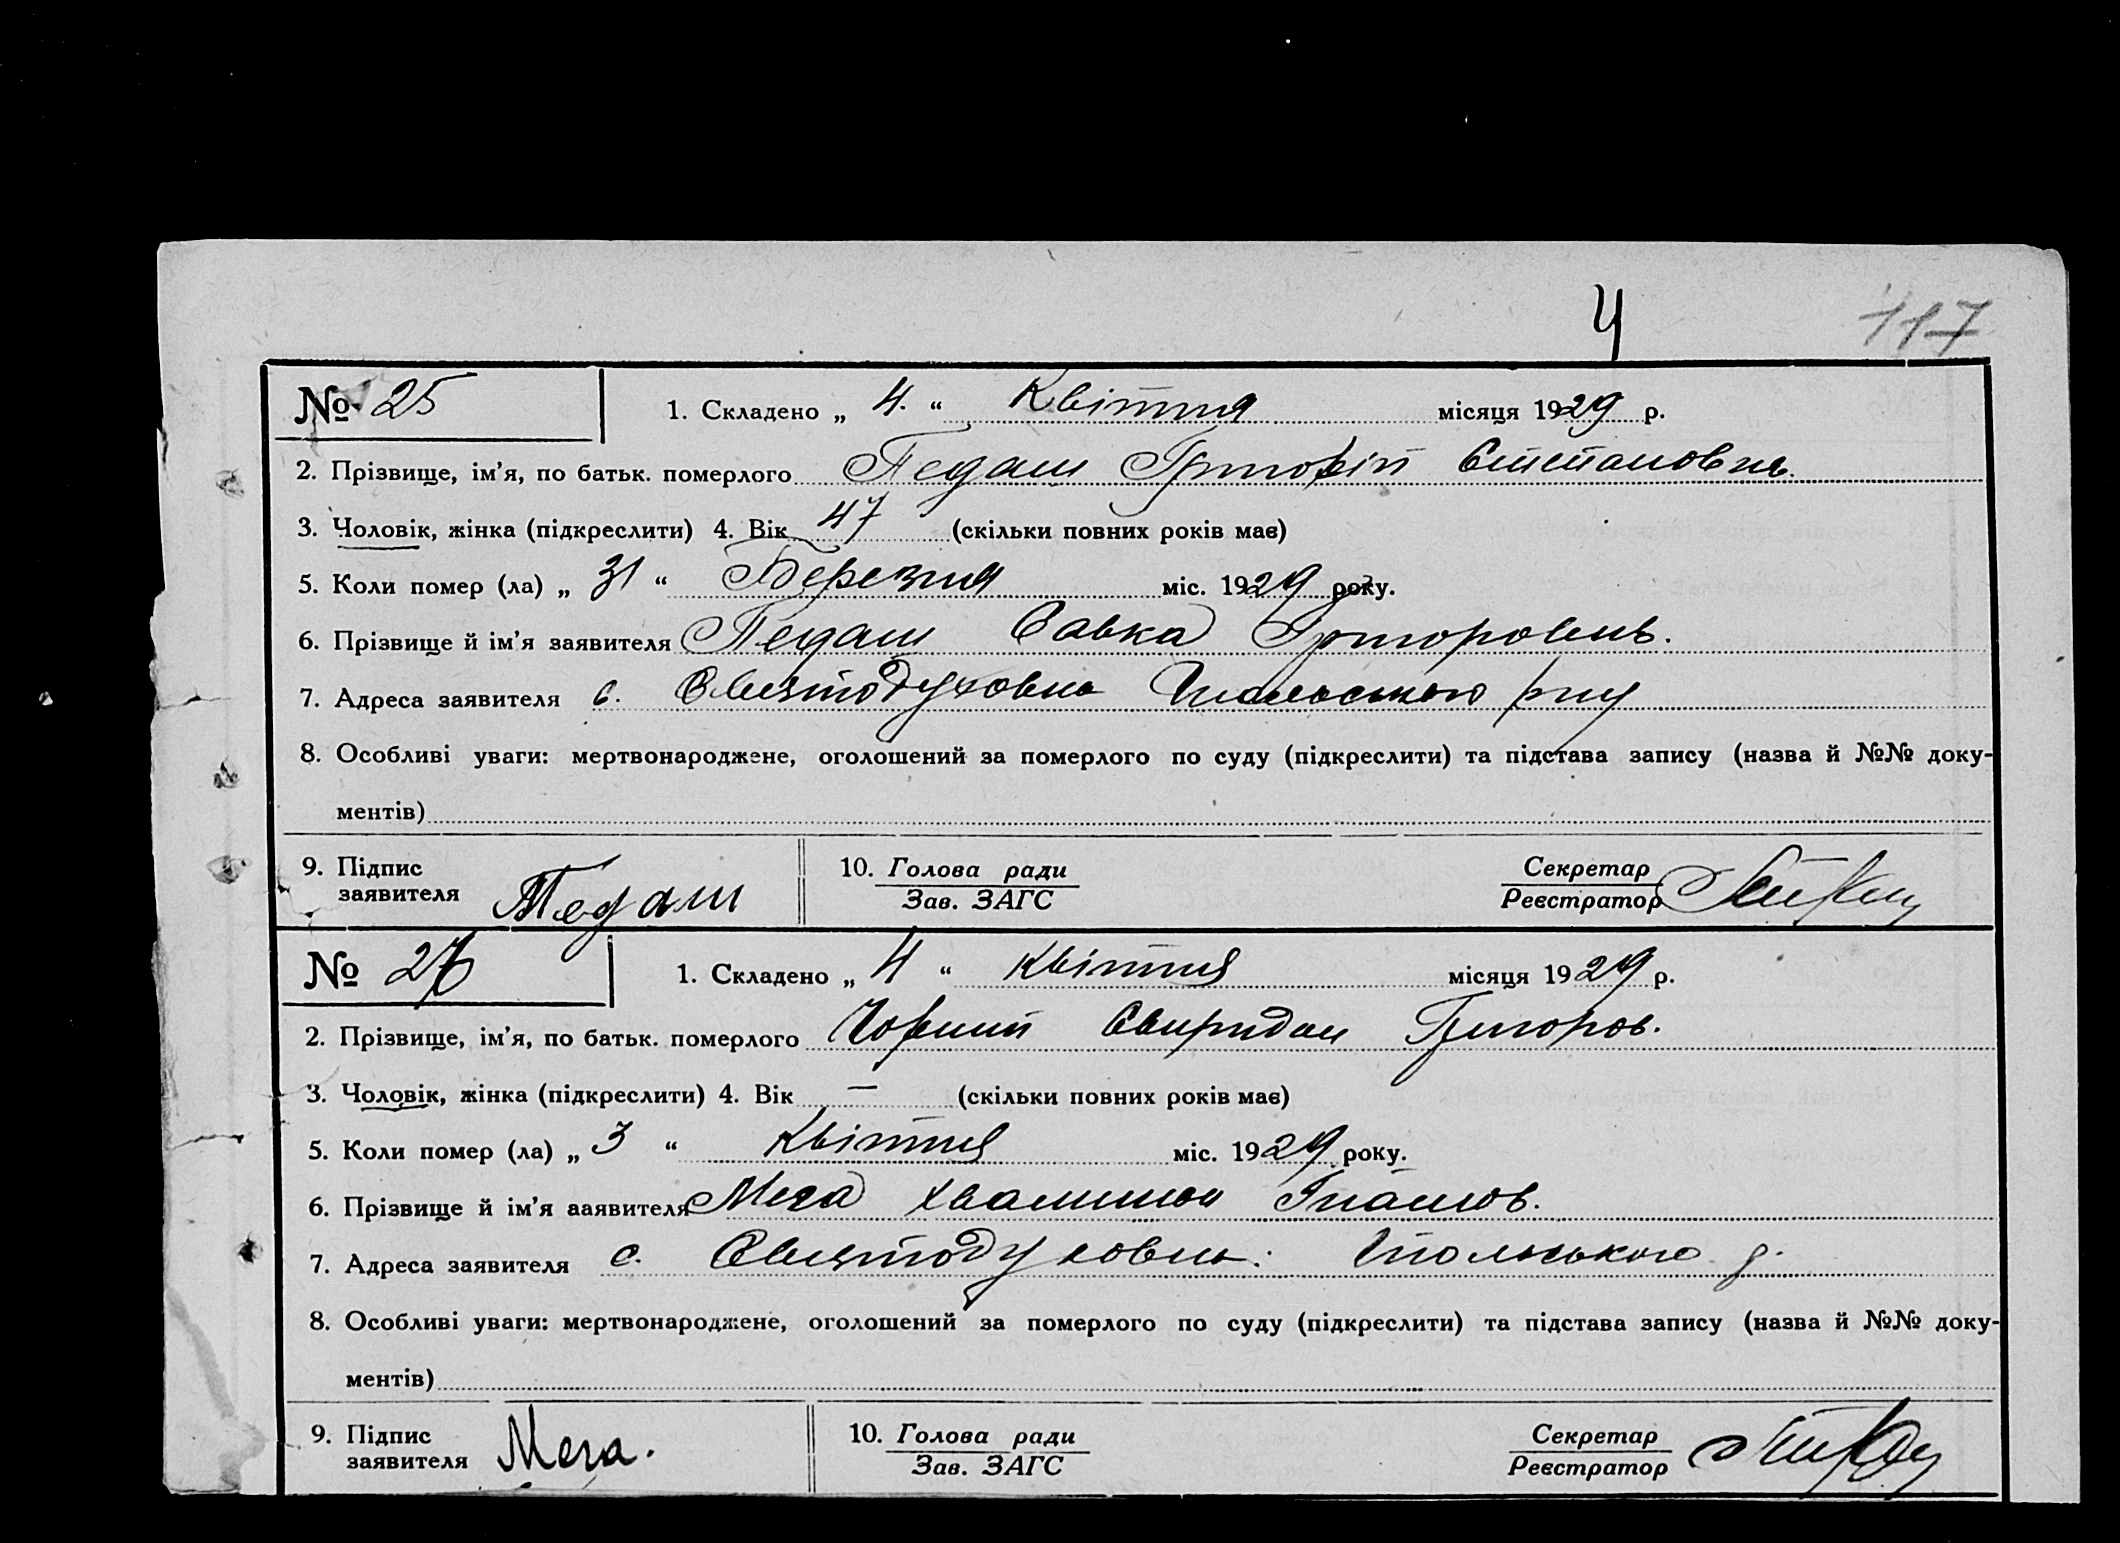 4 117
№ 25 1. Складено „ 4. “ Квітня місяця 1929 р.
2. Прізвище, ім’я, по батьк. померлого Педаш Григорій Степанович.
3. Чоловік, жінка (підкреслити) 4. Вік 47 (скільки повних років має)
5. Коли помер (ла) „ 31 “ Березня міс. 1929 року.
6. Прізвище й ім’я заявителя Педаш Савка Григорович.
7. Адреса заявителя с. Святодухівка
8. Особливі уваги: мертвонароджене, оголошений за померлого по суду (підкреслити) та підстава запису (назва й №№ доку-
ментів)
9. Підпис заявителя Педаш 10. Голова ради Зав. ЗАГС Секретар Реєстратор
№ 26 1. Складено „ 4 “ Квітня місяця 1929 р.
2. Прізвище, ім’я, по батьк. померлого Чорний Свиридон Григоров.
3. Чоловік, жінка (підкреслити) 4. Вік — (скільки повних років має)
5. Коли помер (ла) „ 3 “ Квітня міс. 1929 року.
6. Прізвище й ім’я заявителя Мега
7. Адреса заявителя с.
8. Особливі уваги: мертвонароджене, оголошений за померлого по суду (підкреслити) та підстава запису (назва й №№ доку-
ментів)
9. Підпис заявителя Мега. 10. Голова ради Зав. ЗАГС Секретар Реєстратор